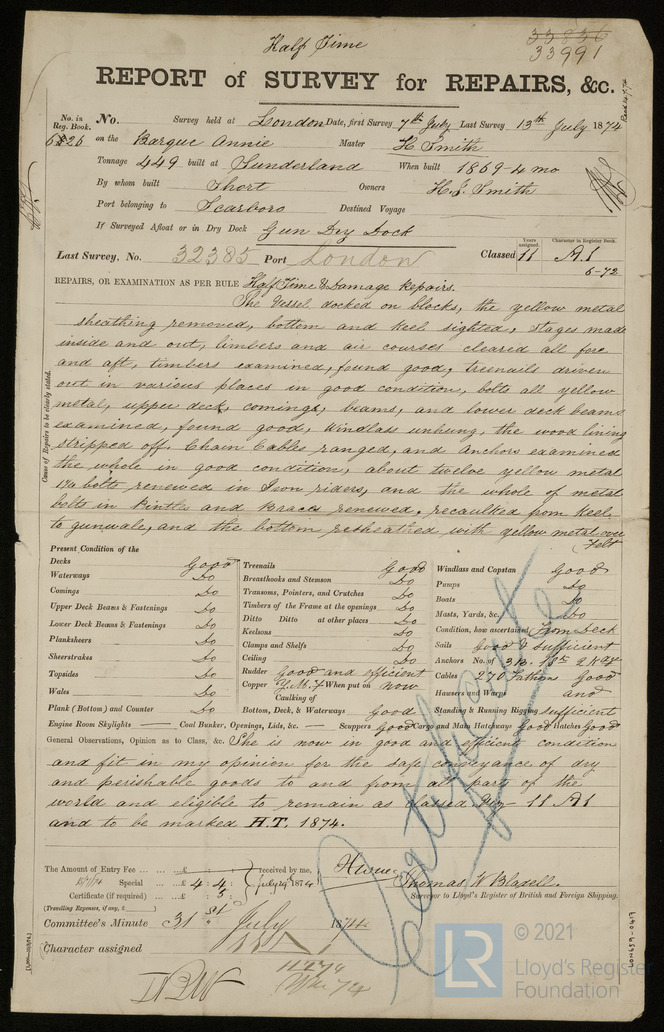 Half Time
33836
33991
REPORT of SURVEY for REPAIRS, &c.
No. in Reg. Book.
No. Survey held at London Date, first Survey 7th July Last Survey 13th July 1874
on the Barque Annie Master H Smith
Tonnage 449 built at Sunderland When built 1869-4 mo
By whom built Short Owners H. J. Smith
Port belonging to Scarboro Destined Voyage
If Surveyed Afloat or in Dry Dock Gun Dry Dock
Last Survey, No. 32385 Port London Classed 11 A1
Years assigned. Character in Register Book.
6-72
REPAIRS, OR EXAMINATION AS PER RULE Half Time & Damage Repairs.
Cause of Repairs to be clearly stated.
The Vessel docked on blocks, the yellow metal
sheathing removed, bottom and keel sighted, stages made
inside and out, limbers and air courses cleared all fore
and aft, timbers examined, found good, treenails driven
out in various places in good condition, bolts all yellow
metal, upper deck, comings, beams, and lower deck beams
examined, found good, windlass unhung, the wood lining
stripped off. Chain Cables ranged, and Anchors examined
the whole in good condition, about twelve yellow metal
bolts renewed in Iron riders, and the whole of metal
bolts in Pintles and Braces renewed, recaulked from keel
to gunwale, and the bottom resheathed with yellow metal over
Felt
Present Condition of the
Decks Good
Waterways Do
Comings Do
Upper Deck Beams & Fastenings Do
Lower Deck Beams & Fastenings Do
Planksheers Do
Sheerstrakes Do
Topsides Do
Wales Do
Plank (Bottom) and Counter Do
Treenails Good
Breasthooks and Stemson Do
Transoms, Pointers, and Crutches Do
Timbers of the Frame at the openings Do
Ditto Ditto at other places Do
Keelsons Do
Clamps and Shelfs Do
Ceiling Do
Rudder Good and efficient
Copper Y.M. & F When put on Now
Caulking of
Bottom, Deck, & Waterways Good
Windlass and Capstan Good
Pumps Do
Boats Do
Masts, Yards, &c. Do
Condition, how ascertained From Deck
Sails Good & Sufficient
Anchors No. of 3 B. 1 St 2 Kedge
Cables 270 Fathom Good
Hausers and Warps and
Standing & Running Rigging sufficient
Engine Room Skylights — Coal Bunker, Openings, Lids, &c. — Scuppers Good Cargo and Main Hatchways Good Hatches Good
General Observations, Opinion as to Class, &c. She is now in good and efficient condition
and fit in my opinion for the safe conveyance of dry
and perishable goods to and from all part of the
world and eligible to remain as classed 11 A1
and to be marked H.T. 1874.
The Amount of Entry Fee ... ... £ : : received by me,
Special ... ... £ 4 : 4 : July 1874
Certificate (if required) ... : 5 :
(Travelling Expenses, if any, £ )
Thomas W Blasell.
Surveyor to Lloyd's Register of British and Foreign Shipping.
Committee's Minute 31st July 1874
Character assigned
Certificate
LON659-0419
© 2021
LR
Lloyd's Register
Foundation